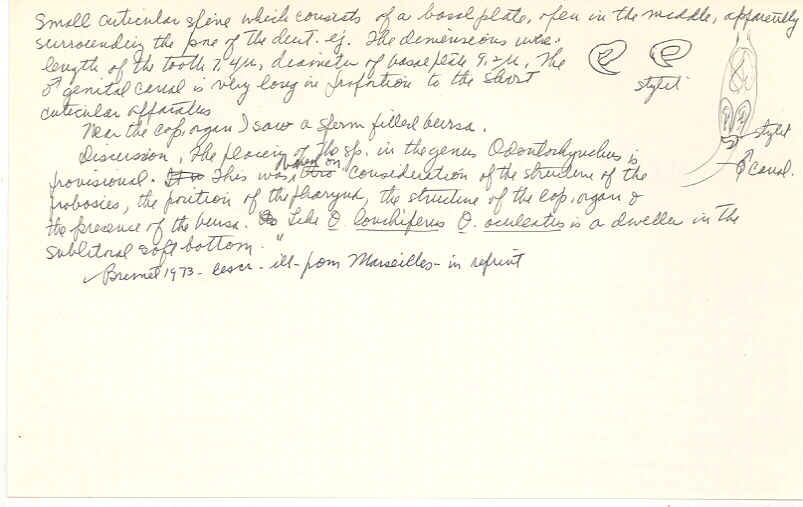 Small cuticular spine which consists of a basal plate, open in the middle, apparently
surrounding the pore of the duct. ej. The dimensions were:
length of the tooth 7.4µ, diameter of basal plate 9.2µ, The
♂ genital canal is very long in proportion to the short
cuticular apparatus
stylet
Near the cop. organ I saw a sperm filled bursa.
stylet
Discussion, The placing of the sp. in the genus Odontorhynchus is
♂ canal.
provisional. It is This was based on this consideration of the structure of the
proboscis, the position of the pharynx, the structure of the cop. organ &
the presence of the bursa. Like O. lonchiferus O. aculeatus is a dweller in the
sublitoral soft bottom."
✓ Brunet 1973 - descr - ill - from Marseilles - in reprint